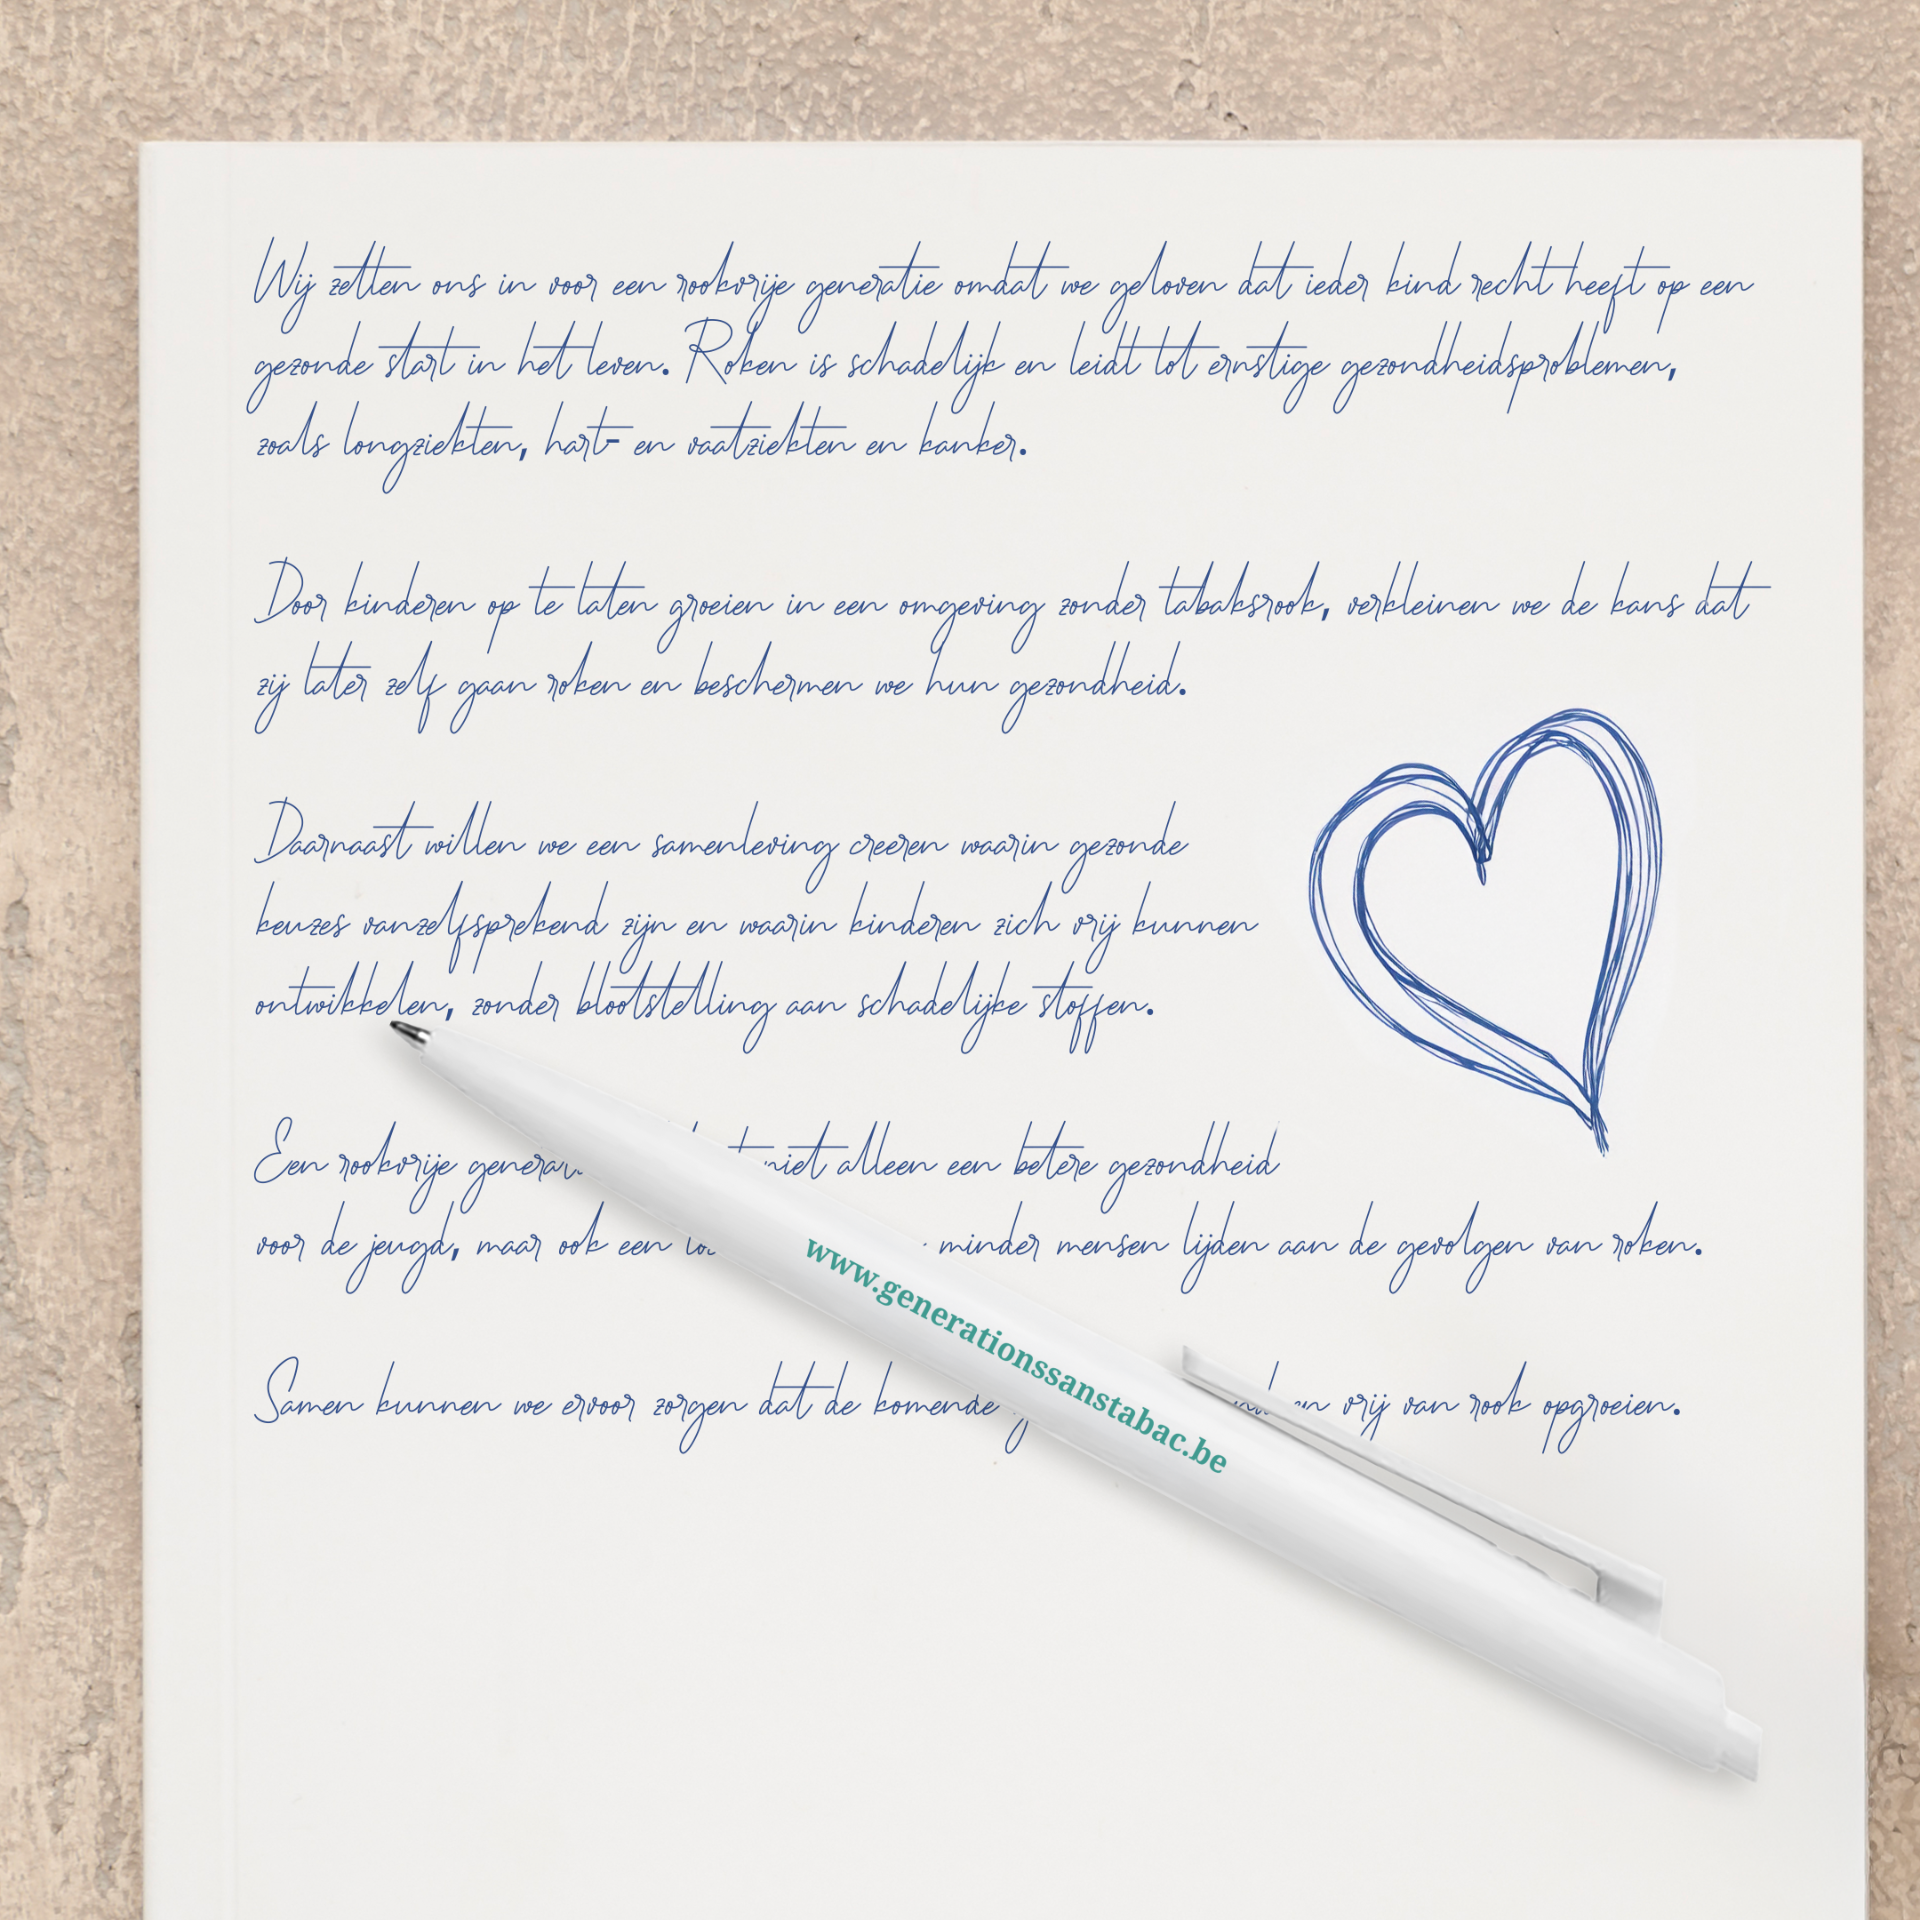 Wij zetten ons in voor een rookvrije generatie omdat we geloven dat ieder kind recht heeft op een
gezonde start in het leven. Roken is schadelijk en leidt tot ernstige gezondheidsproblemen,
zoals longziekten, hart- en vaatziekten en kanker.
Door kinderen op te laten groeien in een omgeving zonder tabaksrook, verkleinen we de kans dat
zij later zelf gaan roken en beschermen we hun gezondheid.
Daarnaast willen we een samenleving creeren waarin gezonde
keuzes vanzelfsprekend zijn en waarin kinderen zich vrij kunnen
ontwikkelen, zonder blootstelling aan schadelijke stoffen.
Een rookvrije niet alleen een betere gezondheid
voor de jeugd, maar ook een minder mensen lijden aan de gevolgen van roken.
www.generationssanstabac.be
Samen kunnen we ervoor zorgen dat de komende vrij van rook opgroeien.